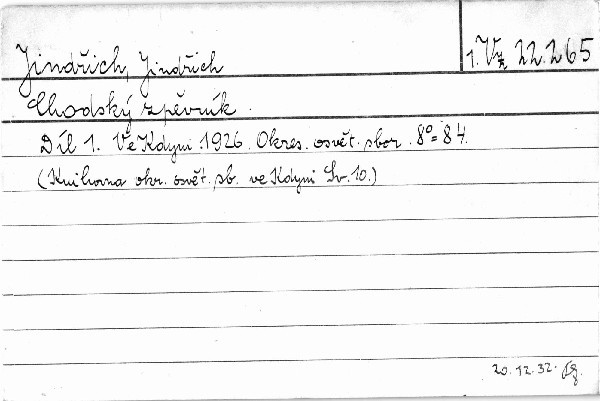 Jindřich, Jindřich
1. Vz 22.265
Chodský zpěvník.
Díl 1. Ve Kdyni 1926. Okres. osvět. sbor. 8°= 84.
(Knihovna okr. osvět. sb. ve Kdyni Sv. 10.)
20.12.32.